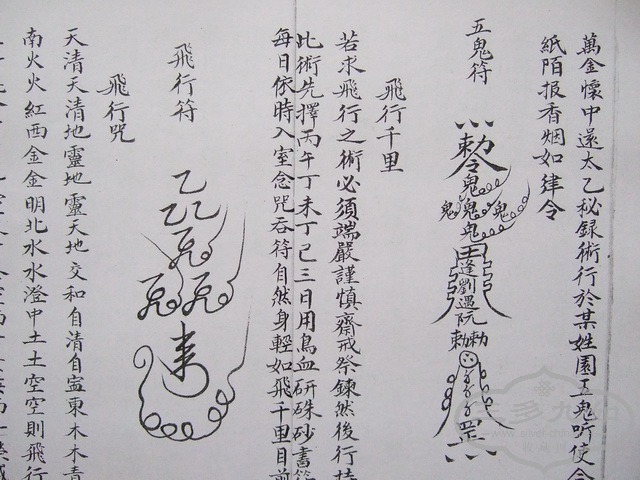 萬金懷中還太乙秘録術行於某姓園五鬼听使令
紙陌报香烟如律令
五鬼符
敕令鬼鬼鬼鬼鬼
逢劉遇阮
勅勅
飛行千里
若求飛行之術必須端嚴謹慎齋戒祭鍊然後行持
此術先擇丙午丁未丁己三日用鳥血研硃砂書符
每日依時入室念咒吞符自然身輕如飛千里目前
飛行符
飛行咒
天清天清地靈地靈天地交和自清自寍東木木青
南火火紅西金金明北水水澄中土土空空則飛行